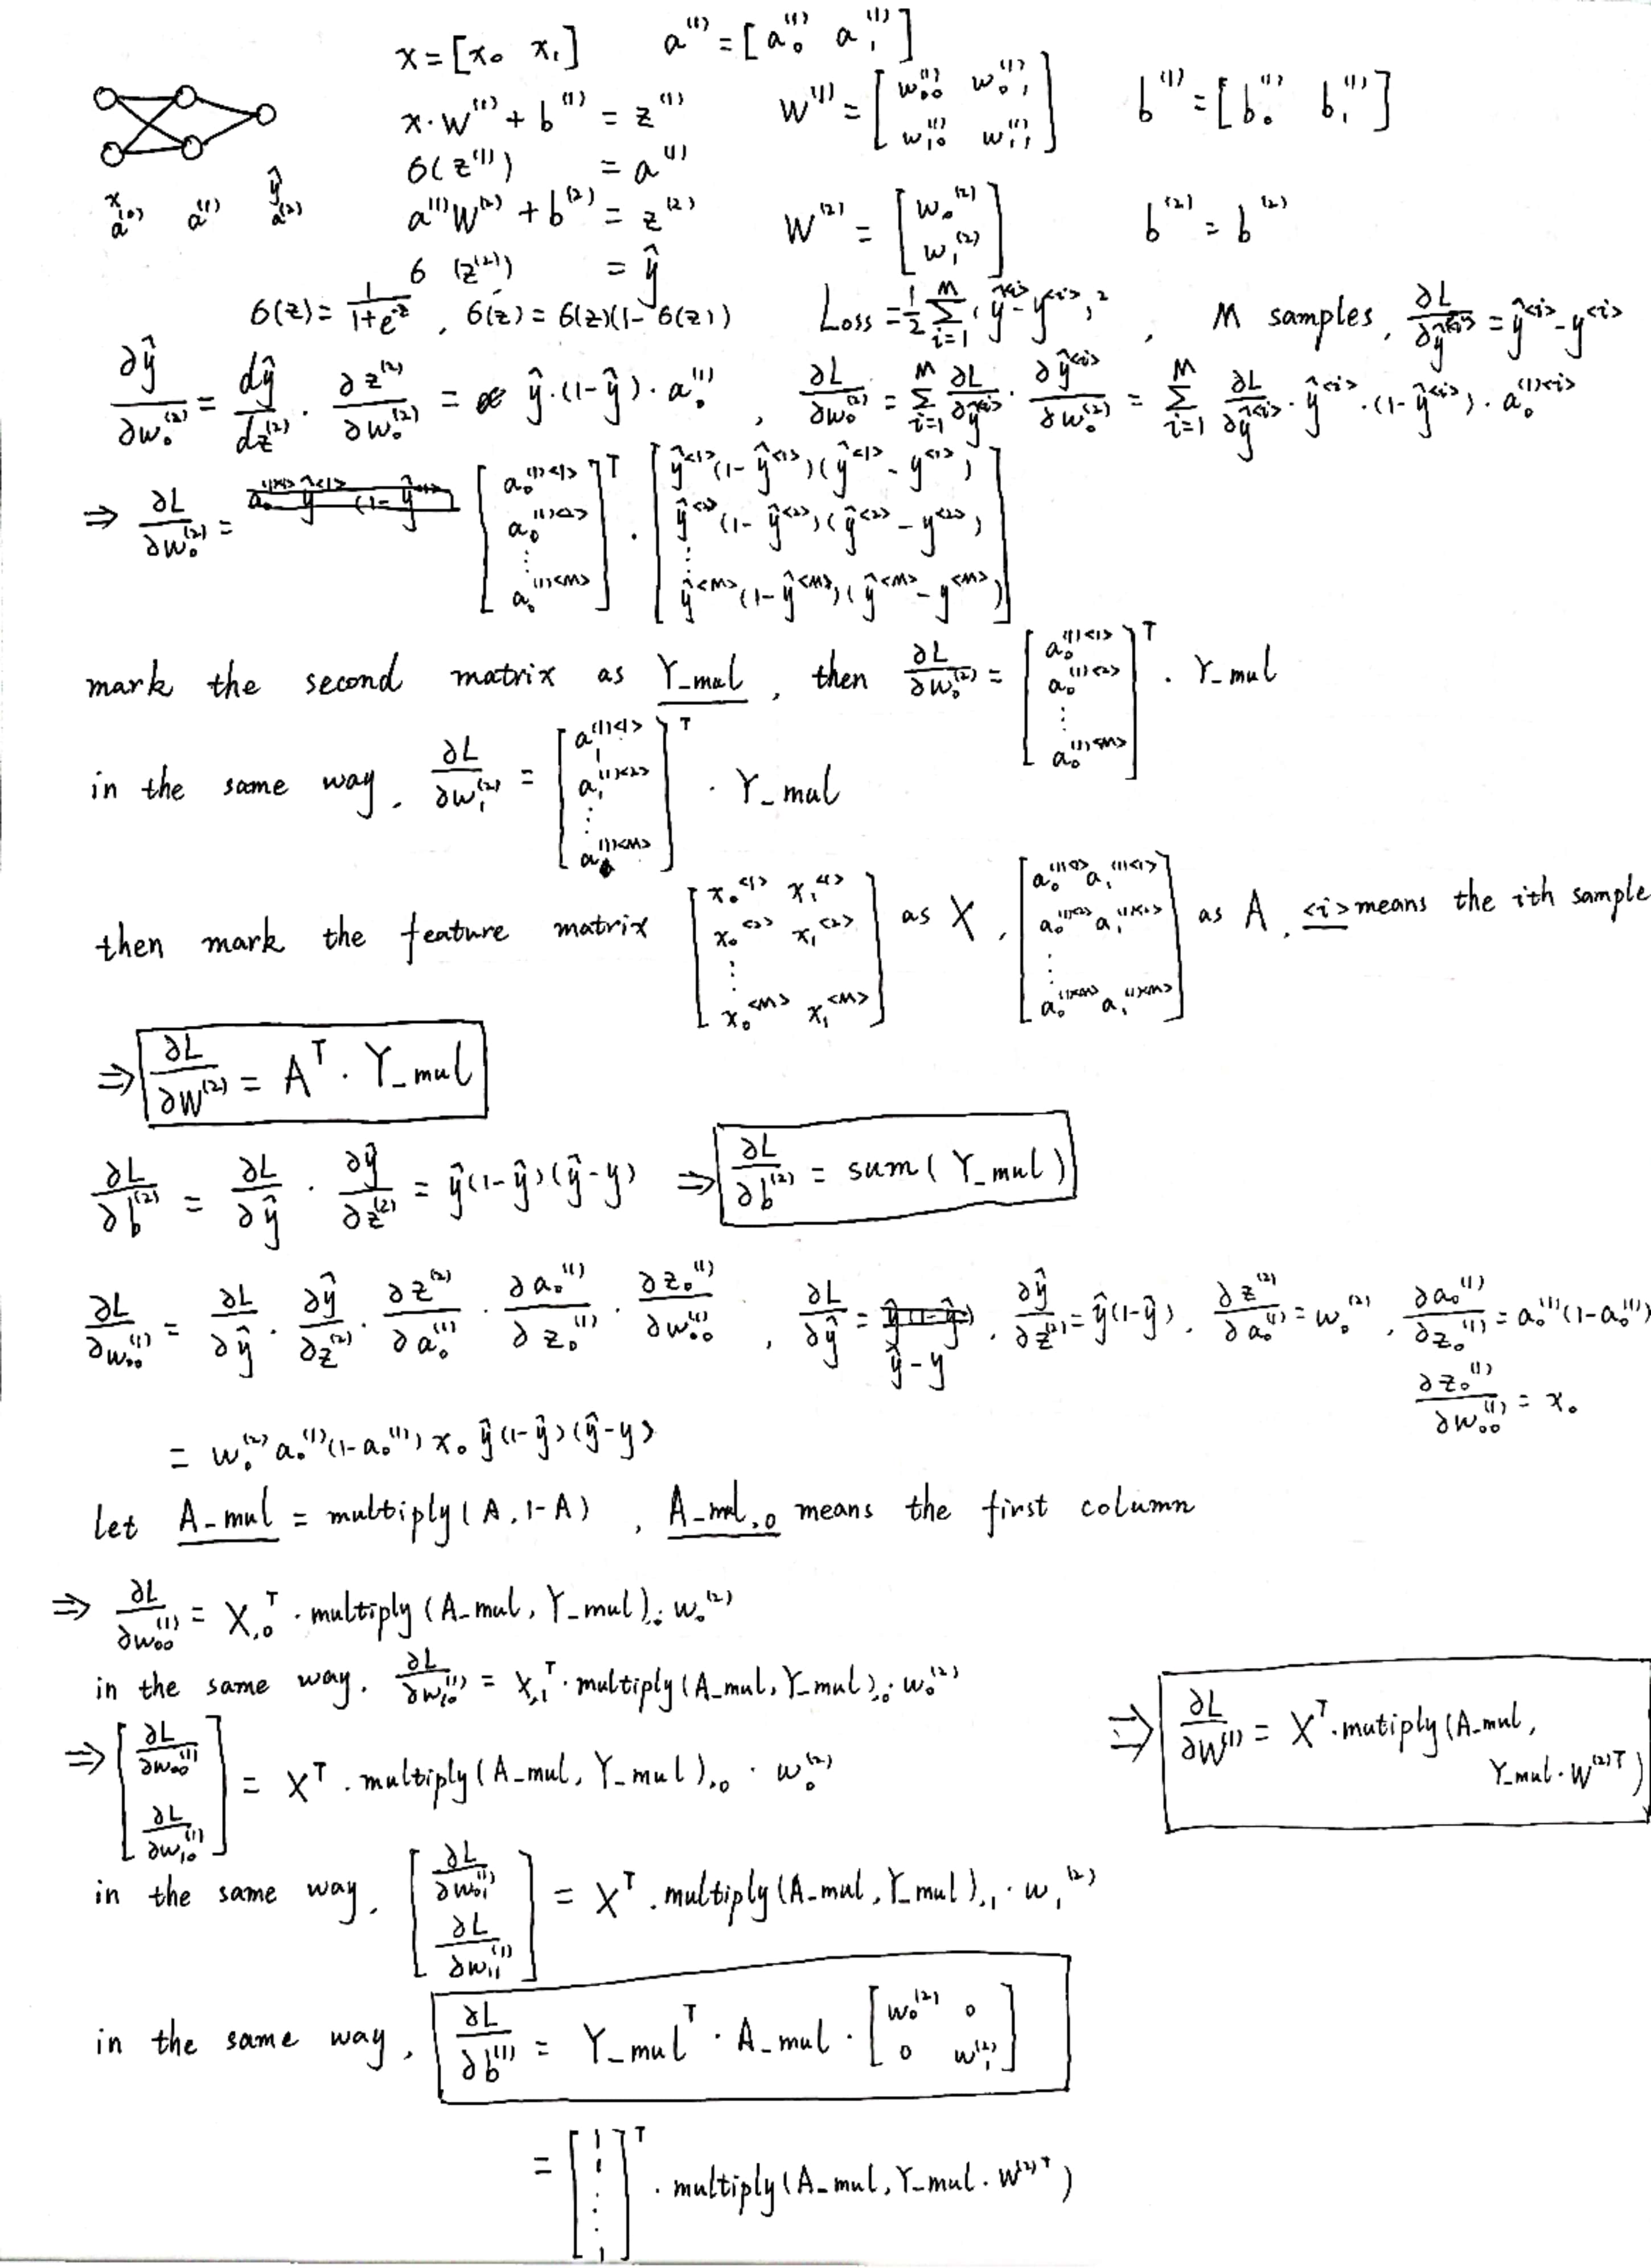 x = [x₀ x₁] a⁽¹⁾ = [a₀⁽¹⁾ a₁⁽¹⁾]
x·W⁽¹⁾ + b⁽¹⁾ = z⁽¹⁾ W⁽¹⁾ = [w₀₀⁽¹⁾ w₀₁⁽¹⁾; w₁₀⁽¹⁾ w₁₁⁽¹⁾] b⁽¹⁾ = [b₀⁽¹⁾ b₁⁽¹⁾]
σ(z⁽¹⁾) = a⁽¹⁾
x a⁽⁰⁾ a⁽¹⁾ ŷ a⁽²⁾
a⁽¹⁾W⁽²⁾ + b⁽²⁾ = z⁽²⁾ W⁽²⁾ = [w₀⁽²⁾; w₁⁽²⁾] b⁽²⁾ = b⁽²⁾
σ(z⁽²⁾) = ŷ
σ(z) = 1/(1+e^-z), σ'(z) = σ(z)(1-σ(z)) Loss = 1/2 Σ_{i=1}^{M} (ŷ^<i> - y^<i>)², M samples, ∂L/∂ŷ^<i> = ŷ^<i> - y^<i>
∂ŷ/∂w₀⁽²⁾ = dŷ/dz⁽²⁾ · ∂z⁽²⁾/∂w₀⁽²⁾ = ŷ·(1-ŷ)·a₀⁽¹⁾, ∂L/∂w₀⁽²⁾ = Σ_{i=1}^{M} ∂L/∂ŷ^<i> · ∂ŷ^<i>/∂w₀⁽²⁾ = Σ_{i=1}^{M} ∂L/∂ŷ^<i> · ŷ^<i>·(1-ŷ^<i>)·a₀^(1)<i>
⇒ ∂L/∂w₀⁽²⁾ = [a₀^(1)<1>; a₀^(1)<2>; ⋮; a₀^(1)<M>]^T · [ŷ^<1>(1-ŷ^<1>)(ŷ^<1>-y^<1>); ŷ^<2>(1-ŷ^<2>)(ŷ^<2>-y^<2>); ⋮; ŷ^<M>(1-ŷ^<M>)(ŷ^<M>-y^<M>)]
mark the second matrix as Y_mul, then ∂L/∂w₀⁽²⁾ = [a₀^(1)<1>; a₀^(1)<2>; ⋮; a₀^(1)<M>]^T · Y_mul
in the same way, ∂L/∂w₁⁽²⁾ = [a₁^(1)<1>; a₁^(1)<2>; ⋮; a^(1)<M>]^T · Y_mul
then mark the feature matrix [x₀^<1> x₁^<1>; x₀^<2> x₁^<2>; ⋮; x₀^<M> x₁^<M>] as X, [a₀^(1)<1> a₁^(1)<1>; a₀^(1)<2> a₁^(1)<2>; ⋮; a₀^(1)<M> a₁^(1)<M>] as A, <i> means the ith sample
⇒ ∂L/∂W⁽²⁾ = A^T · Y_mul
∂L/∂b⁽²⁾ = ∂L/∂ŷ · ∂ŷ/∂z⁽²⁾ = ŷ(1-ŷ)(ŷ-y) ⇒ ∂L/∂b⁽²⁾ = sum(Y_mul)
∂L/∂w₀₀⁽¹⁾ = ∂L/∂ŷ · ∂ŷ/∂z⁽²⁾ · ∂z⁽²⁾/∂a₀⁽¹⁾ · ∂a₀⁽¹⁾/∂z₀⁽¹⁾ · ∂z₀⁽¹⁾/∂w₀₀⁽¹⁾, ∂L/∂ŷ = ŷ-y, ∂ŷ/∂z⁽²⁾ = ŷ(1-ŷ), ∂z⁽²⁾/∂a₀⁽¹⁾ = w₀⁽²⁾, ∂a₀⁽¹⁾/∂z₀⁽¹⁾ = a₀⁽¹⁾(1-a₀⁽¹⁾)
∂z₀⁽¹⁾/∂w₀₀⁽¹⁾ = x₀
= w₀⁽²⁾ a₀⁽¹⁾(1-a₀⁽¹⁾) x₀ ŷ(1-ŷ)(ŷ-y)
let A_mul = multiply(A, 1-A), A_mul,₀ means the first column
⇒ ∂L/∂w₀₀⁽¹⁾ = X,₀^T · multiply(A_mul, Y_mul),₀ · w₀⁽²⁾
in the same way, ∂L/∂w₁₀⁽¹⁾ = X,₁^T · multiply(A_mul, Y_mul),₀ · w₀⁽²⁾
⇒ [∂L/∂w₀₀⁽¹⁾; ∂L/∂w₁₀⁽¹⁾] = X^T · multiply(A_mul, Y_mul),₀ · w₀⁽²⁾ ⇒ ∂L/∂W⁽¹⁾ = X^T·mutiply(A_mul,
Y_mul·W^(2)T)
in the same way, [∂L/∂w₀₁⁽¹⁾; ∂L/∂w₁₁⁽¹⁾] = X^T · multiply(A_mul, Y_mul),₁ · w₁⁽²⁾
in the same way, ∂L/∂b⁽¹⁾ = Y_mul^T · A_mul · [w₀⁽²⁾ 0; 0 w₁⁽²⁾]
= [1; 1; ⋮; 1]^T · multiply(A_mul, Y_mul·W^(2)T)